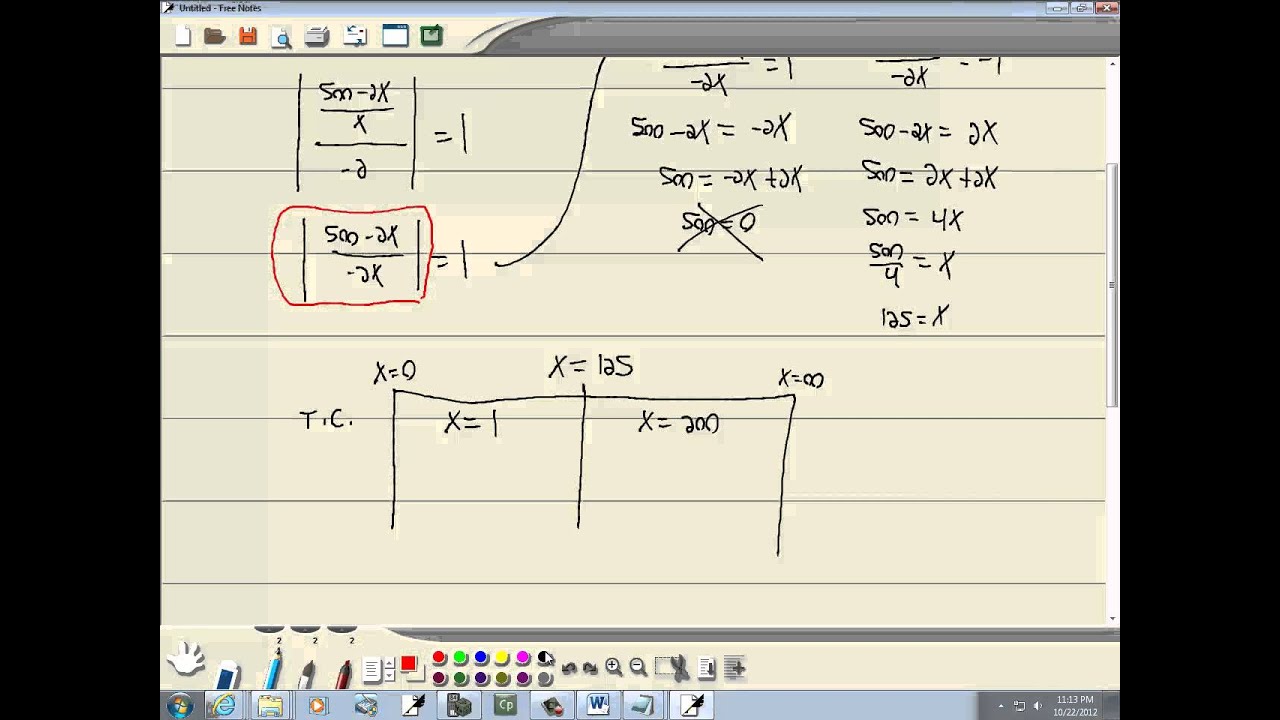 Untitled - Free Notes
| ((500 - 2X)/X)/(-2) | = 1
| (500 - 2X)/(-2X) | = 1
/(-2X) = 1
500 - 2X = -2X
500 = -2X + 2X
500 = 0
/(-2X) = -1
500 - 2X = 2X
500 = 2X + 2X
500 = 4X
500/4 = X
125 = X
X=0 X = 125 X=∞
T.C. X = 1 X = 200
2 2 2
Cp W
11:13 PM
10/22/2012